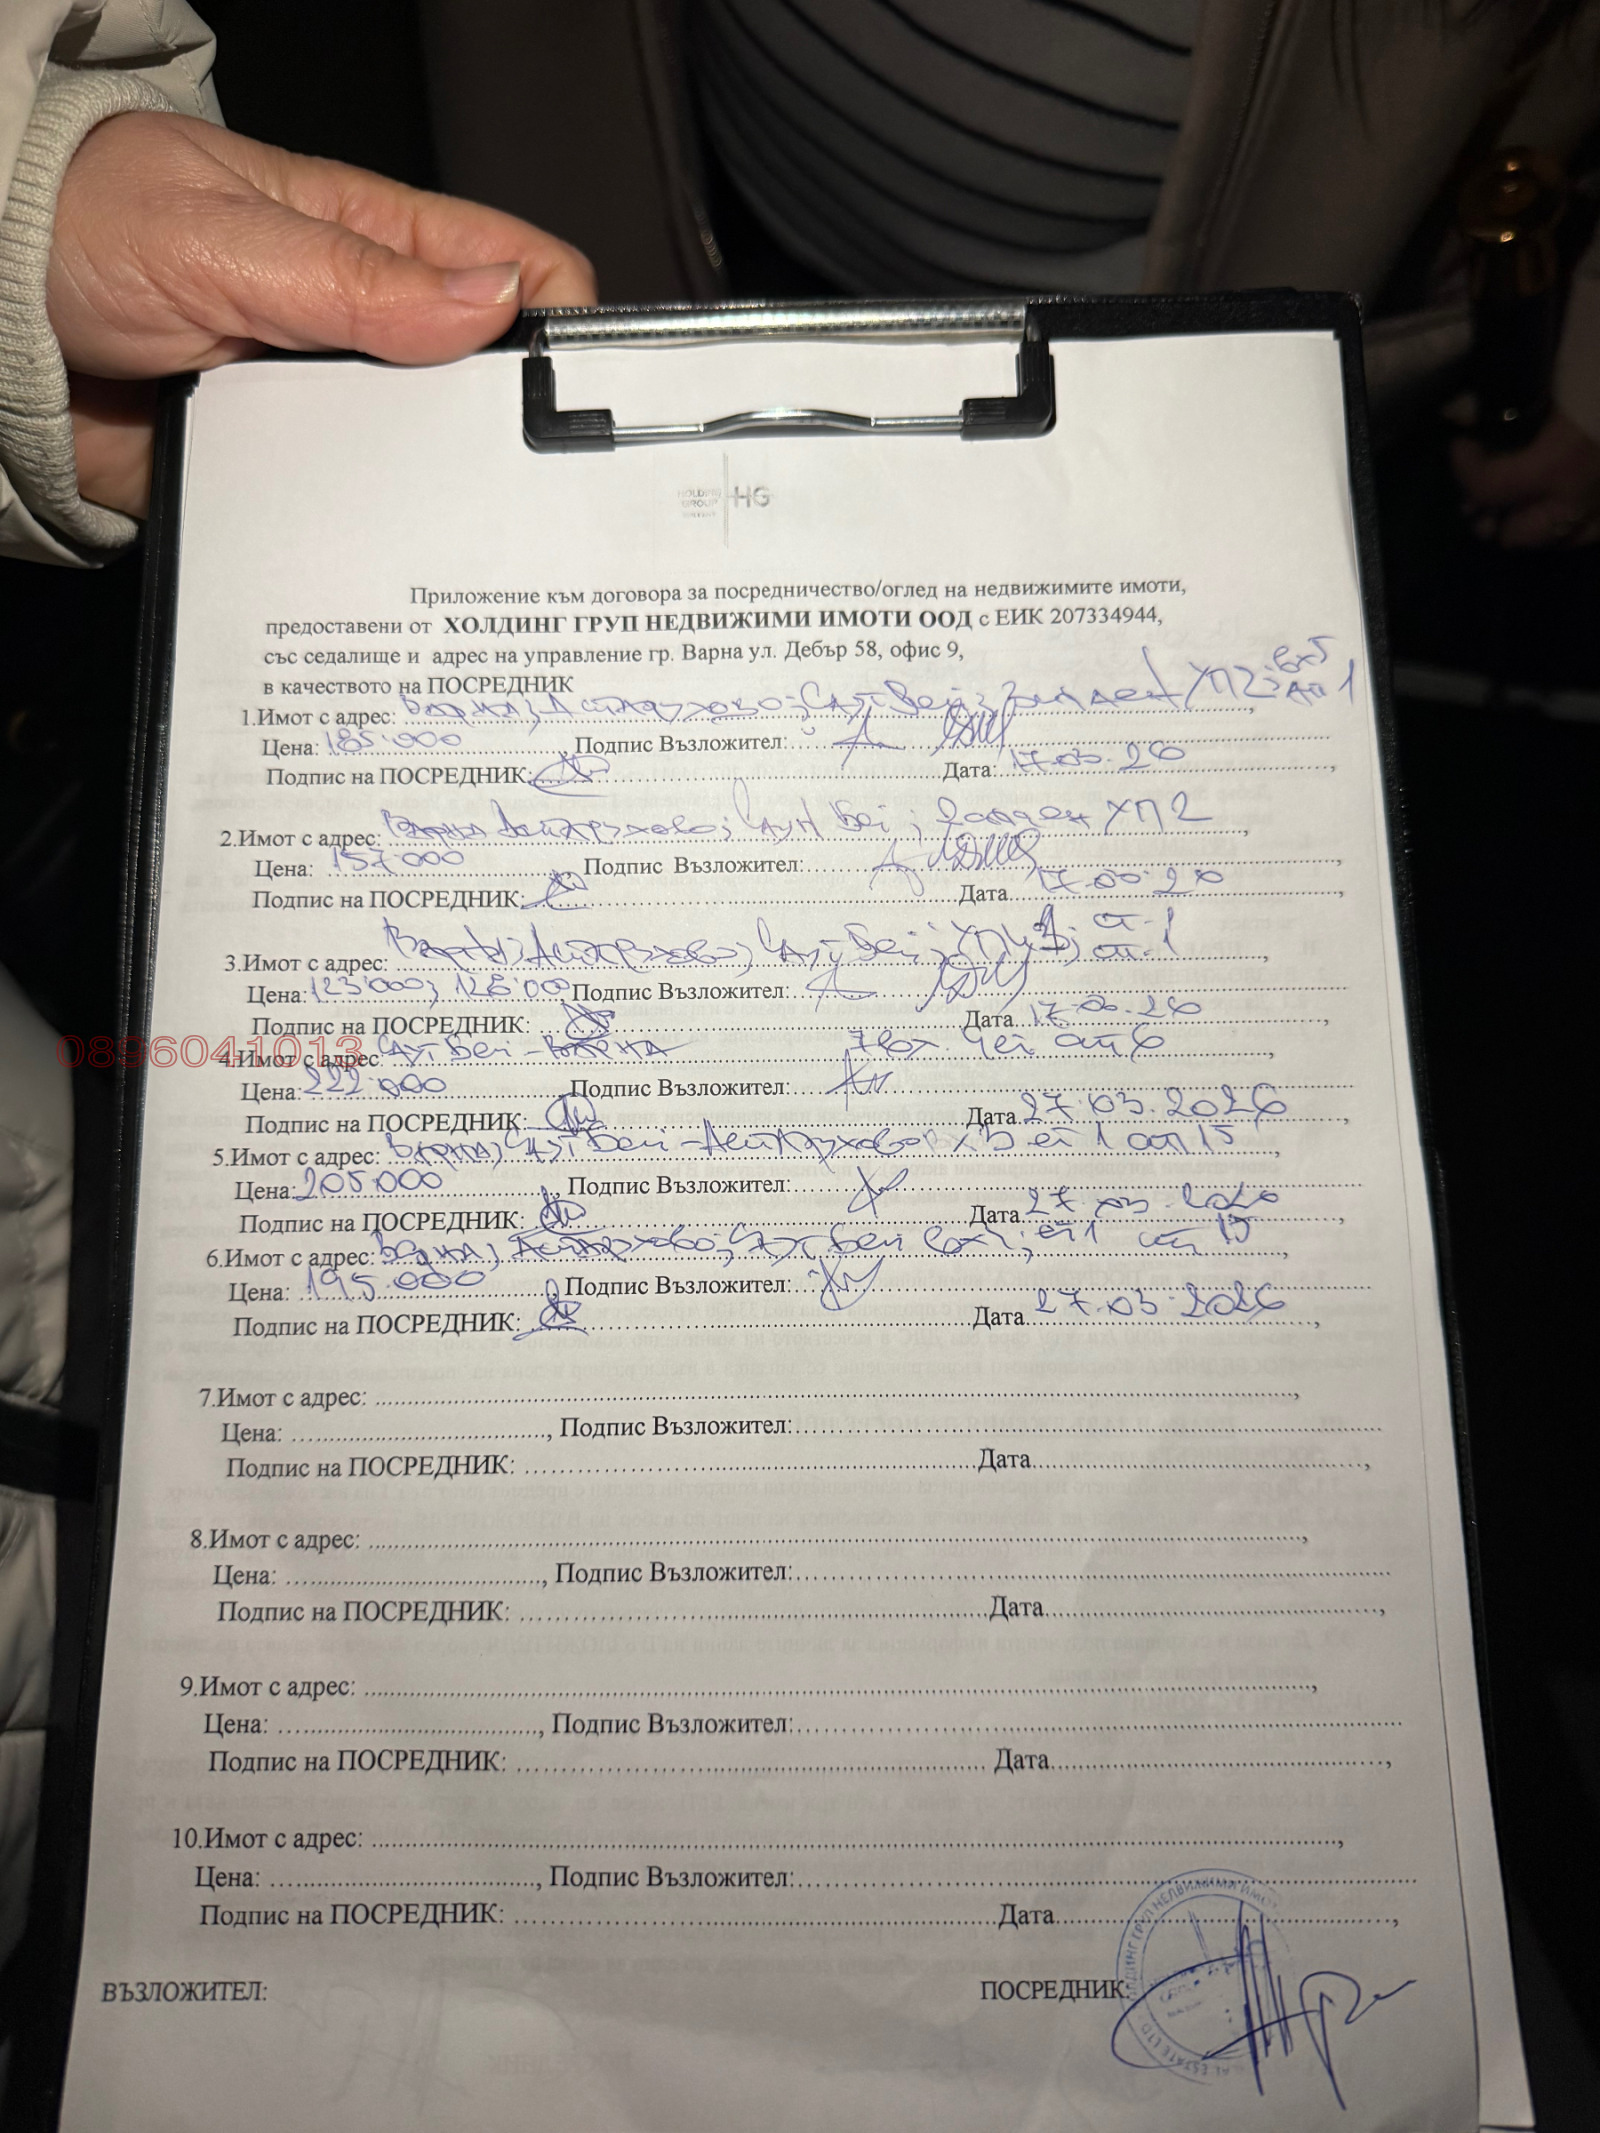 HOLDING
GROUP
HG
Приложение към договора за посредничество/оглед на недвижимите имоти,
предоставени от ХОЛДИНГ ГРУП НЕДВИЖИМИ ИМОТИ ООД с ЕИК 207334944,
със седалище и адрес на управление гр. Варна ул. Дебър 58, офис 9,
в качеството на ПОСРЕДНИК
вх5
1.Имот с адрес: Варна, Аспарухово; Сънбей; ХП2; ап 1
Цена: 185.000, Подпис Възложител:
Подпис на ПОСРЕДНИК: Дата: 17.03.26
2.Имот с адрес: Варна Аспарухово; Сън Бей; ХП2
Цена: 157.000 Подпис Възложител:
Подпис на ПОСРЕДНИК: Дата 17.03.26
3.Имот с адрес: Варна; Аспарухово;
Цена: 123.000; 128.000, Подпис Възложител:
Подпис на ПОСРЕДНИК: Дата 17.03.26
0896041013
4.Имот с адрес: Сън Бей - Варна ап 6
Цена: 222.000, Подпис Възложител:
Подпис на ПОСРЕДНИК: Дата 27.03.2026
5.Имот с адрес: Варна, Сън Бей - Аспарухово ет 1 ап 15
Цена: 205.000, Подпис Възложител:
Подпис на ПОСРЕДНИК: Дата 27.03.2026
6.Имот с адрес: Варна, Аспарухово, Сън Бей ет 1 ап 15
Цена: 195.000, Подпис Възложител:
Подпис на ПОСРЕДНИК: Дата 27.03.2026
7.Имот с адрес:
Цена: , Подпис Възложител:
Подпис на ПОСРЕДНИК: Дата
8.Имот с адрес:
Цена: , Подпис Възложител:
Подпис на ПОСРЕДНИК: Дата
9.Имот с адрес:
Цена: , Подпис Възложител:
Подпис на ПОСРЕДНИК: Дата
10.Имот с адрес:
Цена: , Подпис Възложител:
Подпис на ПОСРЕДНИК: Дата
ВЪЗЛОЖИТЕЛ: ПОСРЕДНИК: